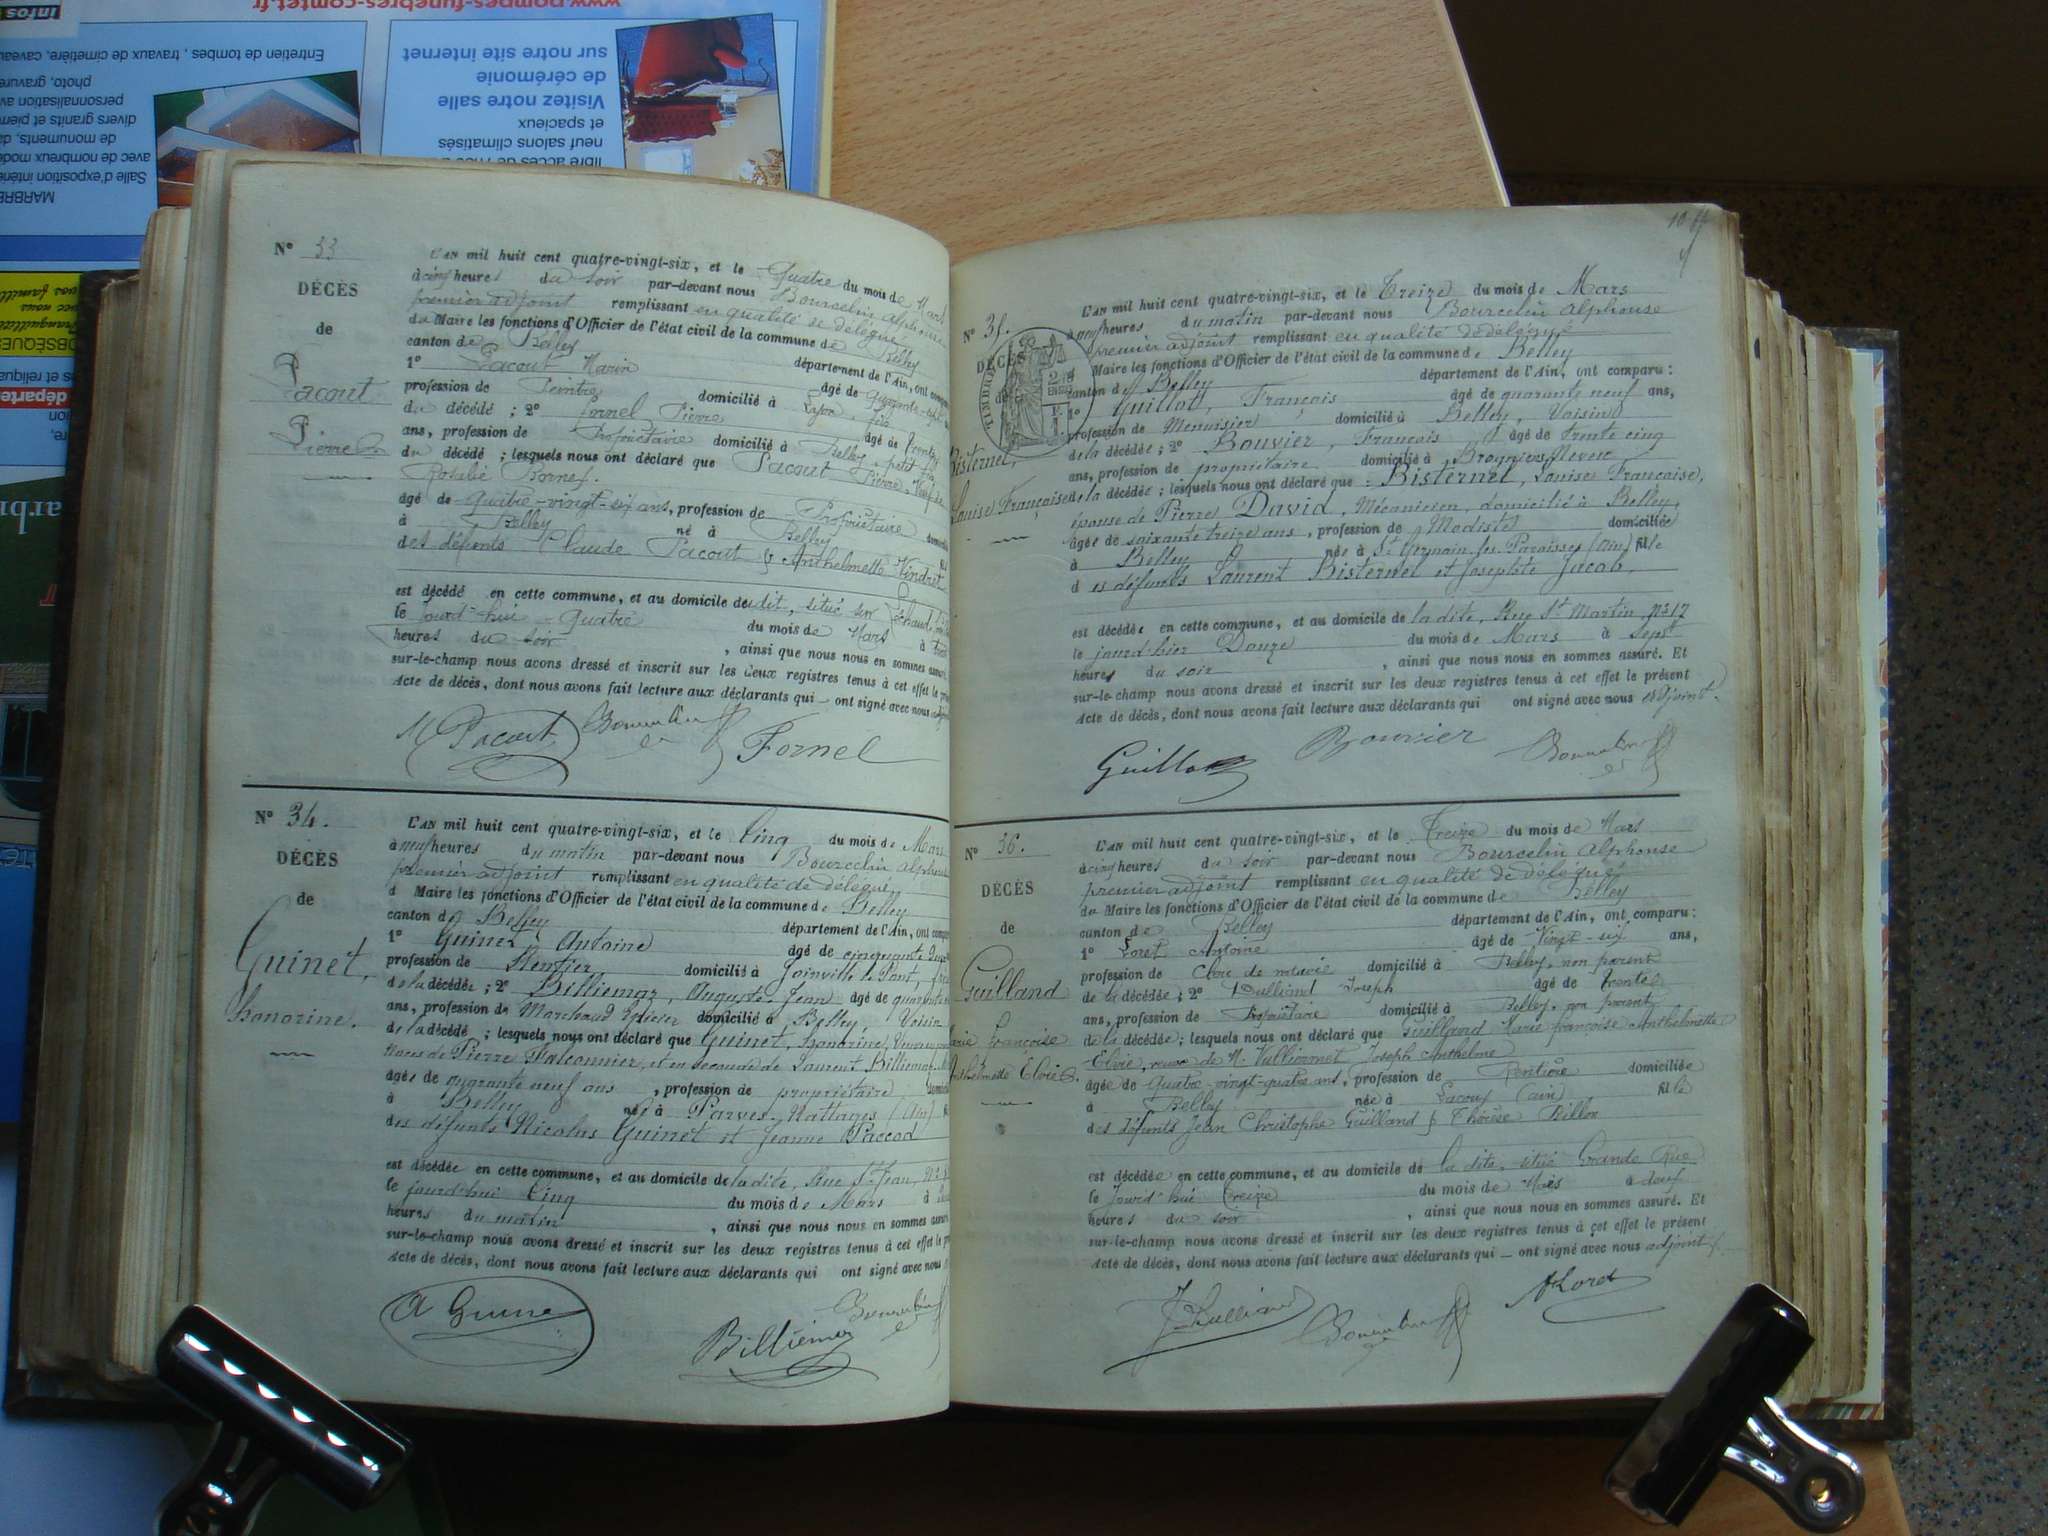 infos
www.pompes-funebres-comtet.fr
Entretien de tombes, travaux de cimetière, caveau
photo, gravure
personnalisation av
divers granits et pierre
de monuments, da
avec de nombreux modè
Salle d'exposition intérie
MARBRE
sur notre site internet
de cérémonie
Visitez notre salle
et spacieux
neuf salons climatisés
N° 33
DÉCÈS
de
Pacout
Pierre
L'AN mil huit cent quatre-vingt-six, et le Quatre du mois de Mars
à cinq heures du soir par-devant nous Bourcelin Alphonse
premier adjoint remplissant en qualité de délégué
du Maire les fonctions d'Officier de l'état civil de la commune de Belley
canton de Belley
département de l'Ain, ont comp
1° Pacout Marin âgé de
profession de Peintre domicilié à Lyon fils
du décédé ; 2° Fornel Pierre âgé de
ans, profession de Propriétaire domicilié à Belley petit fils
du décédé ; lesquels nous ont déclaré que Pacout Pierre
Rosalie Bornet.
âgé de Quatre-vingt-six ans, profession de Propriétaire
à Belley né à Belley
des défunts Claude Pacout & Anthelmette Vindret
est décédé en cette commune, et au domicile dudit, situé
le jourd'hui Quatre du mois de Mars à
heures du soir , ainsi que nous nous en sommes assuré.
sur-le-champ nous avons dressé et inscrit sur les deux registres tenus à cet effet le
Acte de décès, dont nous avons fait lecture aux déclarants qui — ont signé avec nous
M Pacout
Fornel
N° 34.
DÉCÈS
de
Guinet,
Honorine.
L'AN mil huit cent quatre-vingt-six, et le Cinq du mois de Mars
à neuf heures du matin par-devant nous Bourcelin Alphonse
premier adjoint remplissant en qualité de délégué
d Maire les fonctions d'Officier de l'état civil de la commune de Belley
canton de Belley département de l'Ain, ont comp
1° Guinet Antoine âgé de cinquante
profession de Rentier domicilié à Joinville le Pont,
de la décédée ; 2° Billiemaz, Auguste Jean âgé de
ans, profession de Marchand Epicier domicilié à Belley, Voisin
de la décédé ; lesquels nous ont déclaré que Guinet, Honorine,
Noces de Pierre Falconnier, et en seconde de Laurent Billiemaz
âgée de quarante neuf ans , profession de propriétaire
à Belley née à Parves, Nattages (Ain)
des défunts Nicolas Guinet et Jeanne Paccod
est décédée en cette commune, et au domicile de ladite, Rue St Jean,
le jourd'hui Cinq du mois de Mars à
heures du matin , ainsi que nous nous en sommes assuré
sur-le-champ nous avons dressé et inscrit sur les deux registres tenus à cet effet le
Acte de décès, dont nous avons fait lecture aux déclarants qui ont signé avec nous
A Guine
Billiémaz
N° 35.
DÉCÈS
TIMBRE
Bisternel,
Louise Françoise
L'AN mil huit cent quatre-vingt-six, et le Treize du mois de Mars
à neuf heures du matin par-devant nous Bourcelin Alphonse
premier adjoint remplissant en qualité de délégué
Maire les fonctions d'Officier de l'état civil de la commune de Belley
canton de Belley département de l'Ain, ont comparu :
1° Guillot, François âgé de quarante neuf ans,
profession de Menuisier domicilié à Belley, Voisin
de la décédée ; 2° Bouvier, François âgé de trente cinq
ans, profession de propriétaire domicilié à
de la décédée ; lesquels nous ont déclaré que Bisternel, Louise Françoise,
épouse de Pierre David, Mécanicien, domicilié à Belley,
âgée de soixante treize ans, profession de Modiste domiciliée
à Belley née à St Germain les Paroisses (Ain) fille
des défunts Laurent Bisternel et Josephte Jacob,
est décédée en cette commune, et au domicile de la dite, Rue St Martin, N° 12
le jourd'hier Douze du mois de Mars à Sept
heures du soir , ainsi que nous nous en sommes assuré. Et
sur-le-champ nous avons dressé et inscrit sur les deux registres tenus à cet effet le présent
Acte de décès, dont nous avons fait lecture aux déclarants qui ont signé avec nous adjoint.
Guillot
Bouvier
N° 36.
DÉCÈS
de
Guilland
Marie Françoise
Anthelmette Elvie
L'AN mil huit cent quatre-vingt-six, et le Treize du mois de Mars
à cinq heures du soir par-devant nous Bourcelin Alphonse
premier adjoint remplissant en qualité de délégué
du Maire les fonctions d'Officier de l'état civil de la commune de Belley
canton de Belley département de l'Ain, ont comparu :
1° Loret Antoine âgé de Vingt-six ans,
profession de Clerc de domicilié à Belley, non parent
de la décédée ; 2° Dulliand Joseph âgé de trente
ans, profession de Propriétaire domicilié à Belley, non parent
de la décédée ; lesquels nous ont déclaré que Guilland Marie Françoise Anthelmette
Elvie, veuve de Mr Joseph Anthelme
âgée de Quatre-vingt-quatre ans, profession de Rentière domiciliée
à Belley née à Lacoux (ain) fille
des défunts Jean Christophe Guilland & Thérèse Billon
est décédée en cette commune, et au domicile de la dite, situé Grande Rue
le jourd'hui Treize du mois de Mars à deux
heures du soir , ainsi que nous nous en sommes assuré. Et
sur-le-champ nous avons dressé et inscrit sur les deux registres tenus à cet effet le présent
Acte de décès, dont nous avons fait lecture aux déclarants qui — ont signé avec nous adjoint
J Dulliand
A Loret